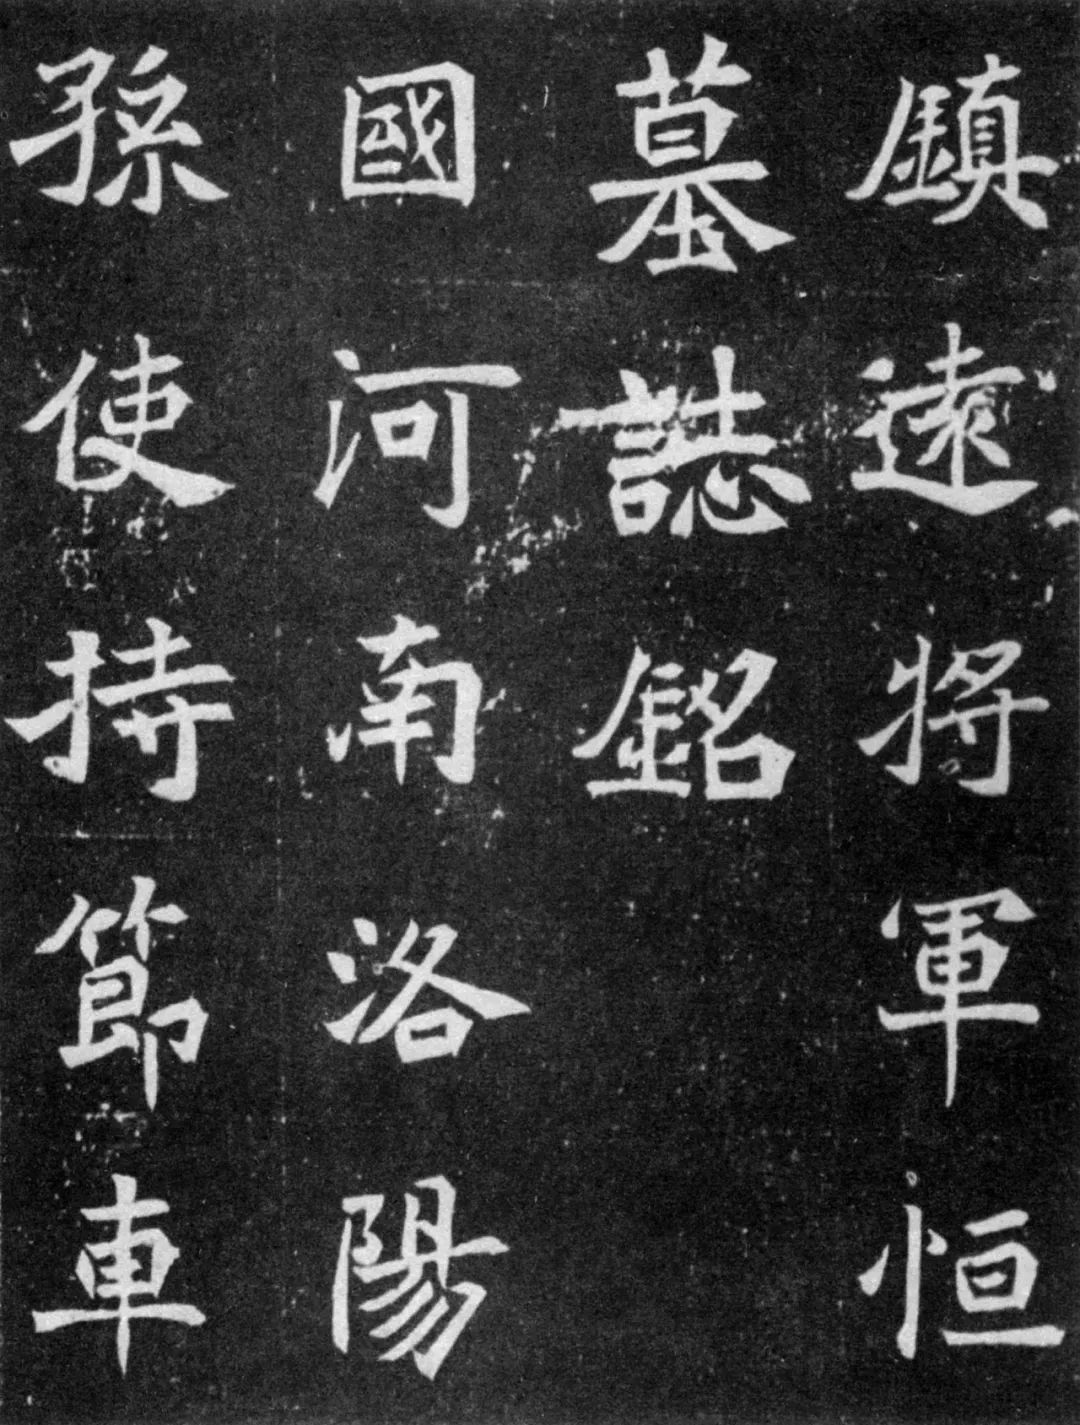 鎮遠將軍恒
墓誌銘
國河南洛陽
孫使持節車